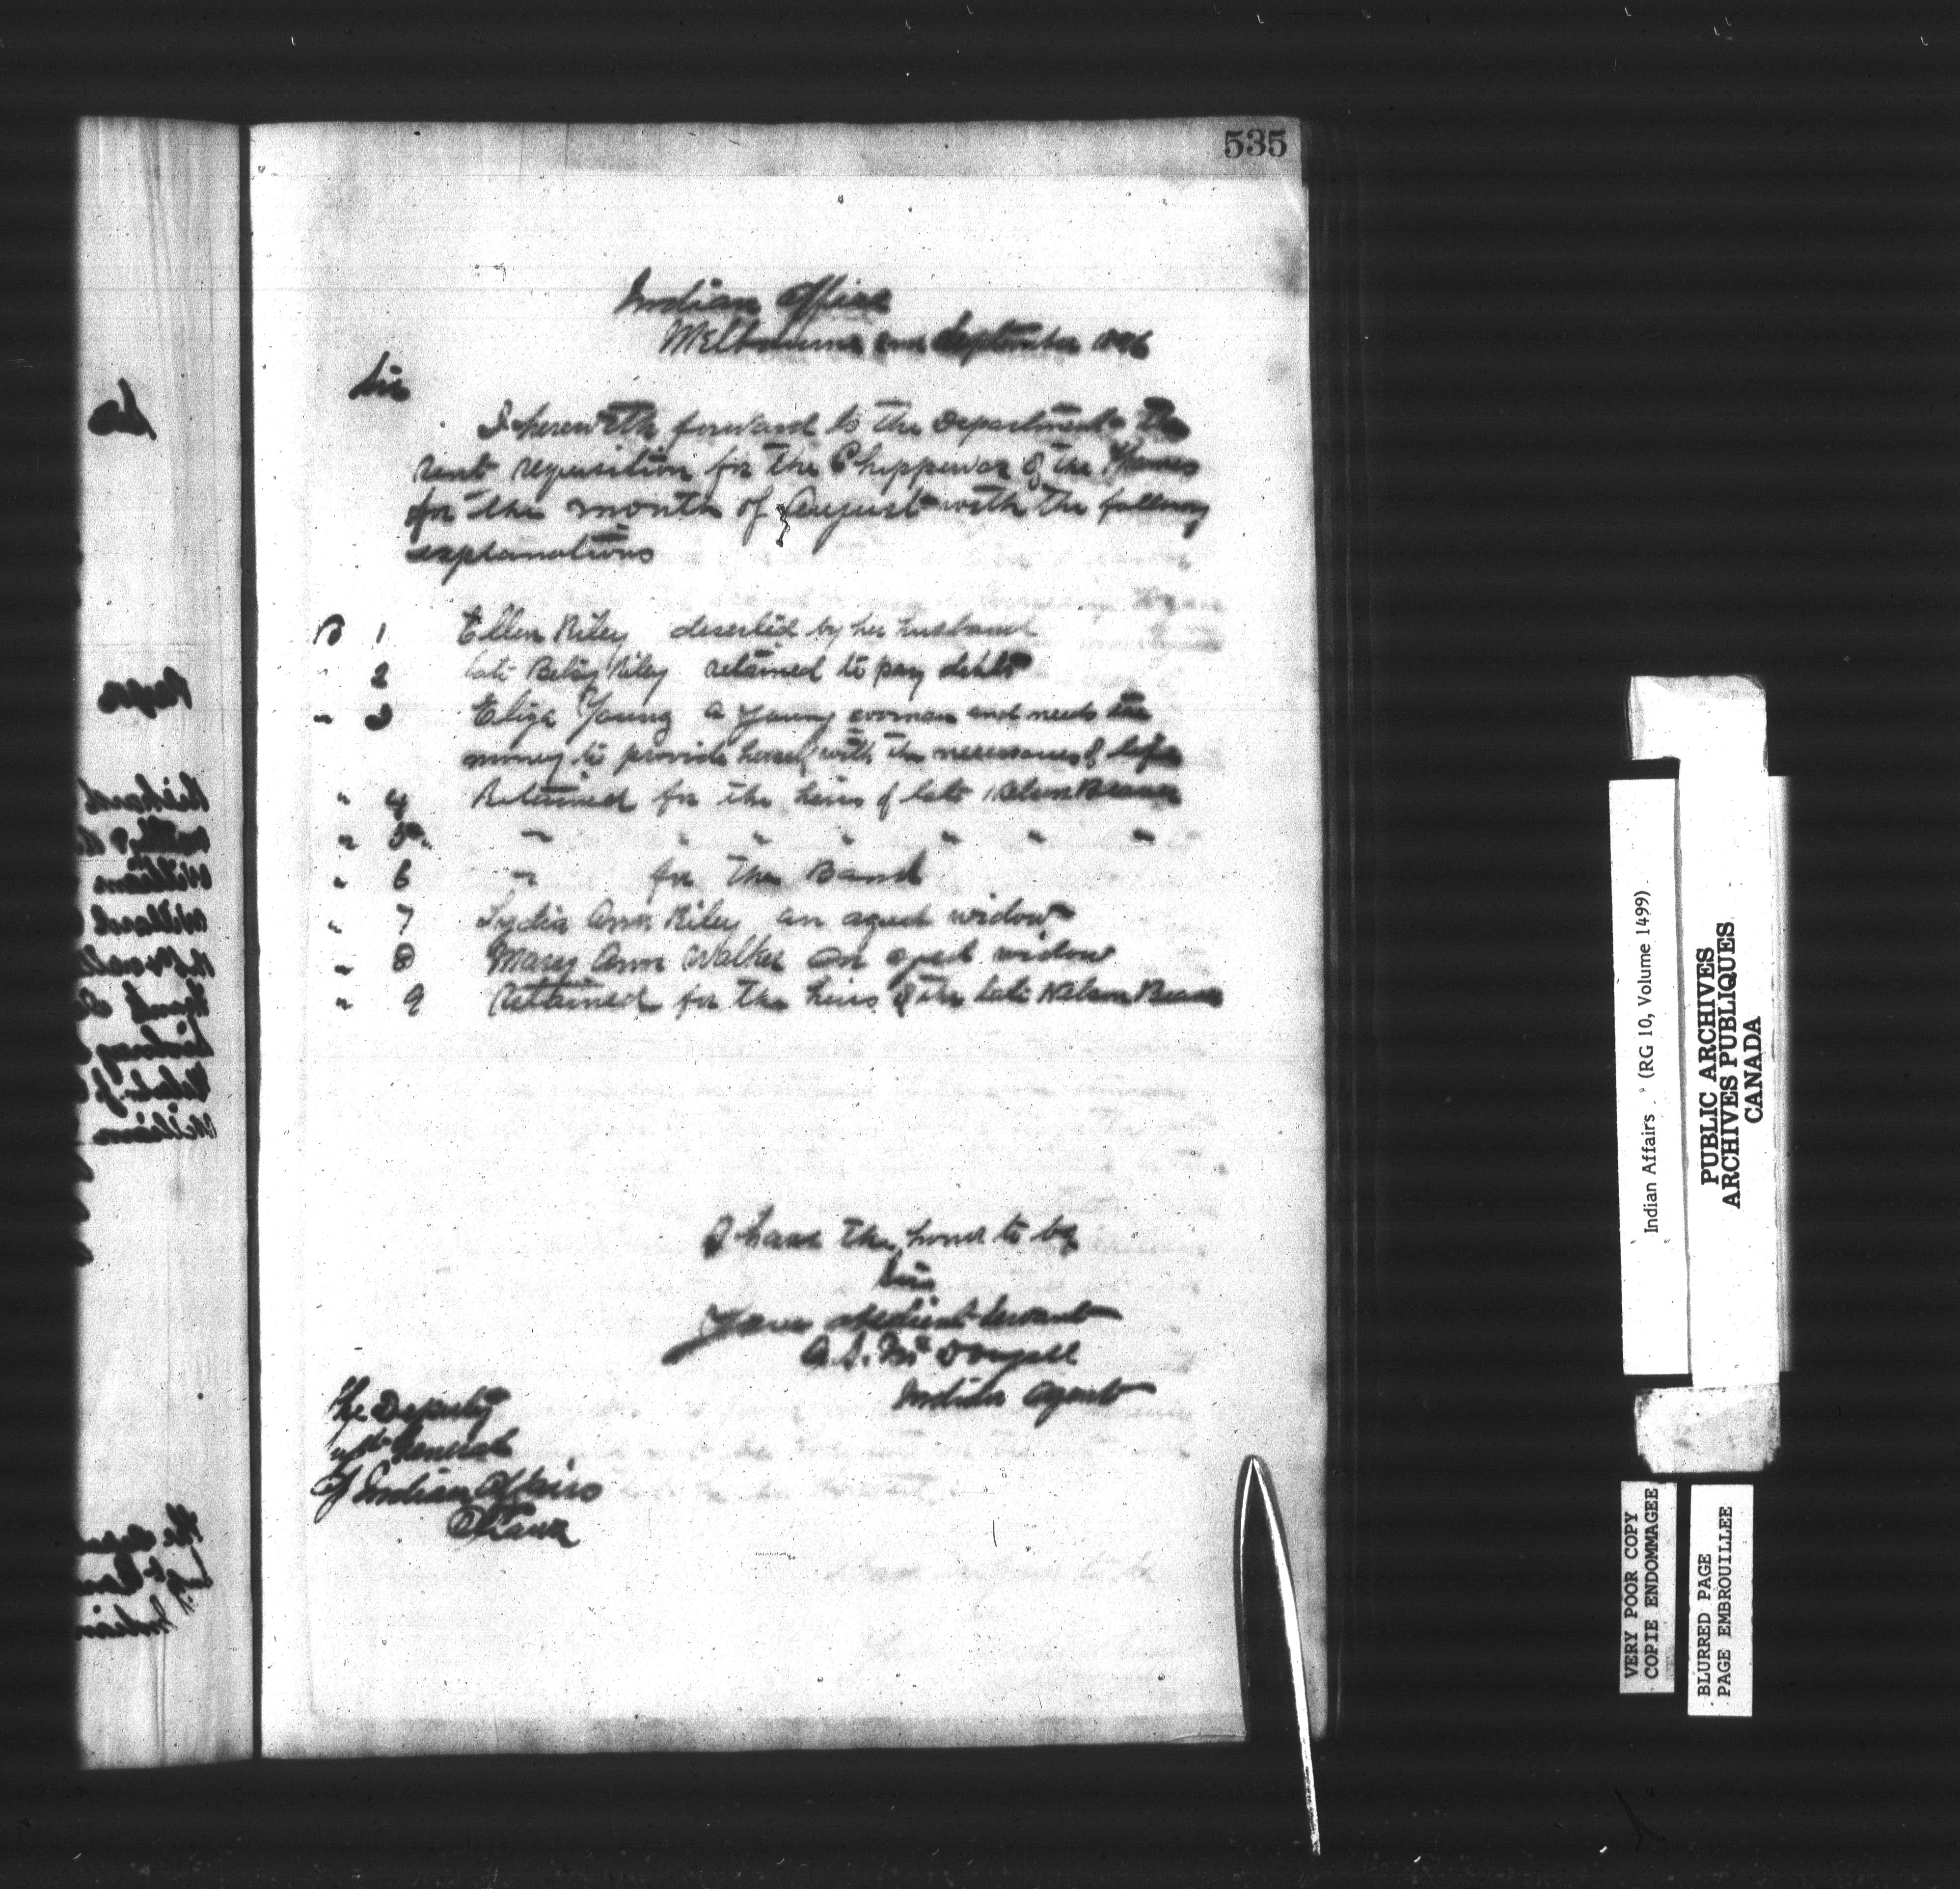 535
Indian Office
Melbourne 2nd September 1896
Sir
I herewith forward to the Department the
rent requisition for the Chippewas of the Thames
for the month of August with the following
explanations
B 1 Ellen Riley deserted by her husband
" 2 late Betsy Riley retained to pay debts
" 3 Eliza Young a young woman and needs the
money to provide herself with the necessaries of life
" 4 Retained for the heirs of late Nelson Beaver
" 5 " " " " " " "
" 6 " for the Band
" 7 Lydia Ann Riley an aged widow
" 8 Mary Ann Walker an aged widow
" 9 Retained for the heirs of the late Nelson Beaver
I have the honor to be
Sir
Your obedient Servant
A. S. McDougall
Indian Agent
The Deputy
Supt General
Of Indian Affairs
Ottawa
Indian Affairs . (RG 10, Volume 1499)
PUBLIC ARCHIVES
ARCHIVES PUBLIQUES
CANADA
VERY POOR COPY
COPIE ENDOMMAGEE
BLURRED PAGE
PAGE EMBROUILLEE